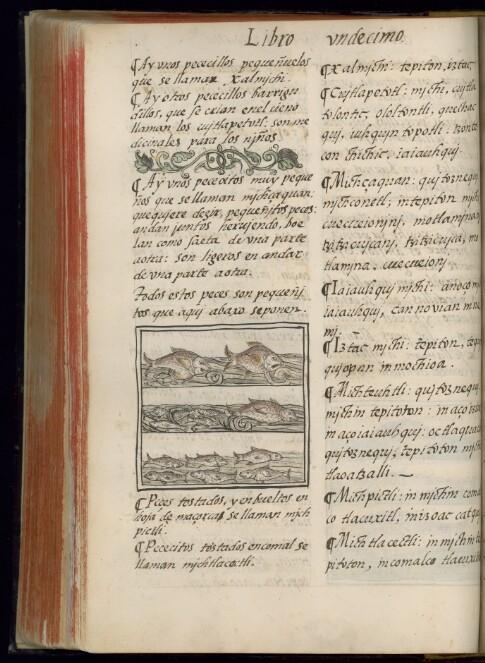 Libro vndecimo
¶ Ay vnos pececillos pequeñuelos
que se llaman Xalmichi.
¶ Ay otros pececillos barrigu
dillos, que se crian en el cieno
llaman los cujtlapetutl: son me
dicinales para los njños.
¶ Ay vnos pececitos muy peque
ños que se llaman mjchçaquan:
que quiere dezir, pequeñjtos peces:
andan juntos heruiendo, boe
lan como saeta de vna parte
a otra: son ligeros en andar
de vna parte a otra.
Todos estos peces son pequeñj
tos que aqui abaxo se ponen.
¶ Peces tostados, y enbueltos en
oja de maçorcas se llaman mjch
pictli.
¶ Pececitos tostados en comal se
llaman mjchtlacectli.
¶ Xalmichi: tepiton, iztac
¶ Cujtlapetotl: michi, cujtla
tolontic, ololtontli, quelhac
quj, iuhqujn topotli:
con chichic, iaiauhquj.
¶ Mjchçaquan: qujtoznequj
mjchconetl, in tepiton
cuecueionjnj, motlamjnanj
tzitzicujcanj, tzitzicujca, mo
tlamjna, cuecueionj.
¶ Iaiauhquj mjchi: çan ocom
iaiauhquj, can no vian
nj.
¶ Iztac mjchi: tepiton,
qujopan in mochioa.
¶ Mjchteuhtli: qujtoznequj
mjchin tepitoton: in aço iztac
maço iaiauhquj: oc tlaquauh
qujtoznequj, tepitoton mjch
tlaoatzalli.
¶ Mjchpictli: in mjchin coma
co tlacuxitl, injzoac
¶ Mjchtlacectli: in mjchin te
pitoton, in comalco tlacuxitl